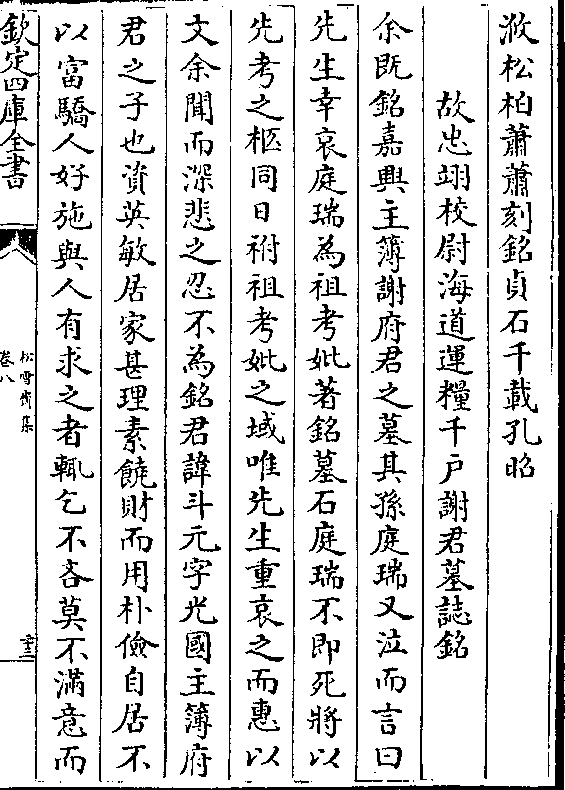 滺松柏蕭蕭刻銘貞石千載孔昭
故忠翊校尉海道運糧千戸謝君墓誌銘
余既銘嘉興主簿謝府君之墓其孫庭瑞又泣而言曰
先生幸哀庭瑞為祖考妣著銘墓石庭瑞不即死將以
先考之柩同日祔祖考妣之域唯先生重哀之而惠以
文余聞而深悲之忍不為銘君諱斗元字光國主簿府
君之子也資英敏居家甚理素饒財而用朴儉自居不
以富驕人好施與人有求之者輒乞不吝莫不滿意而
欽定四庫全書
松雪齋集
卷八